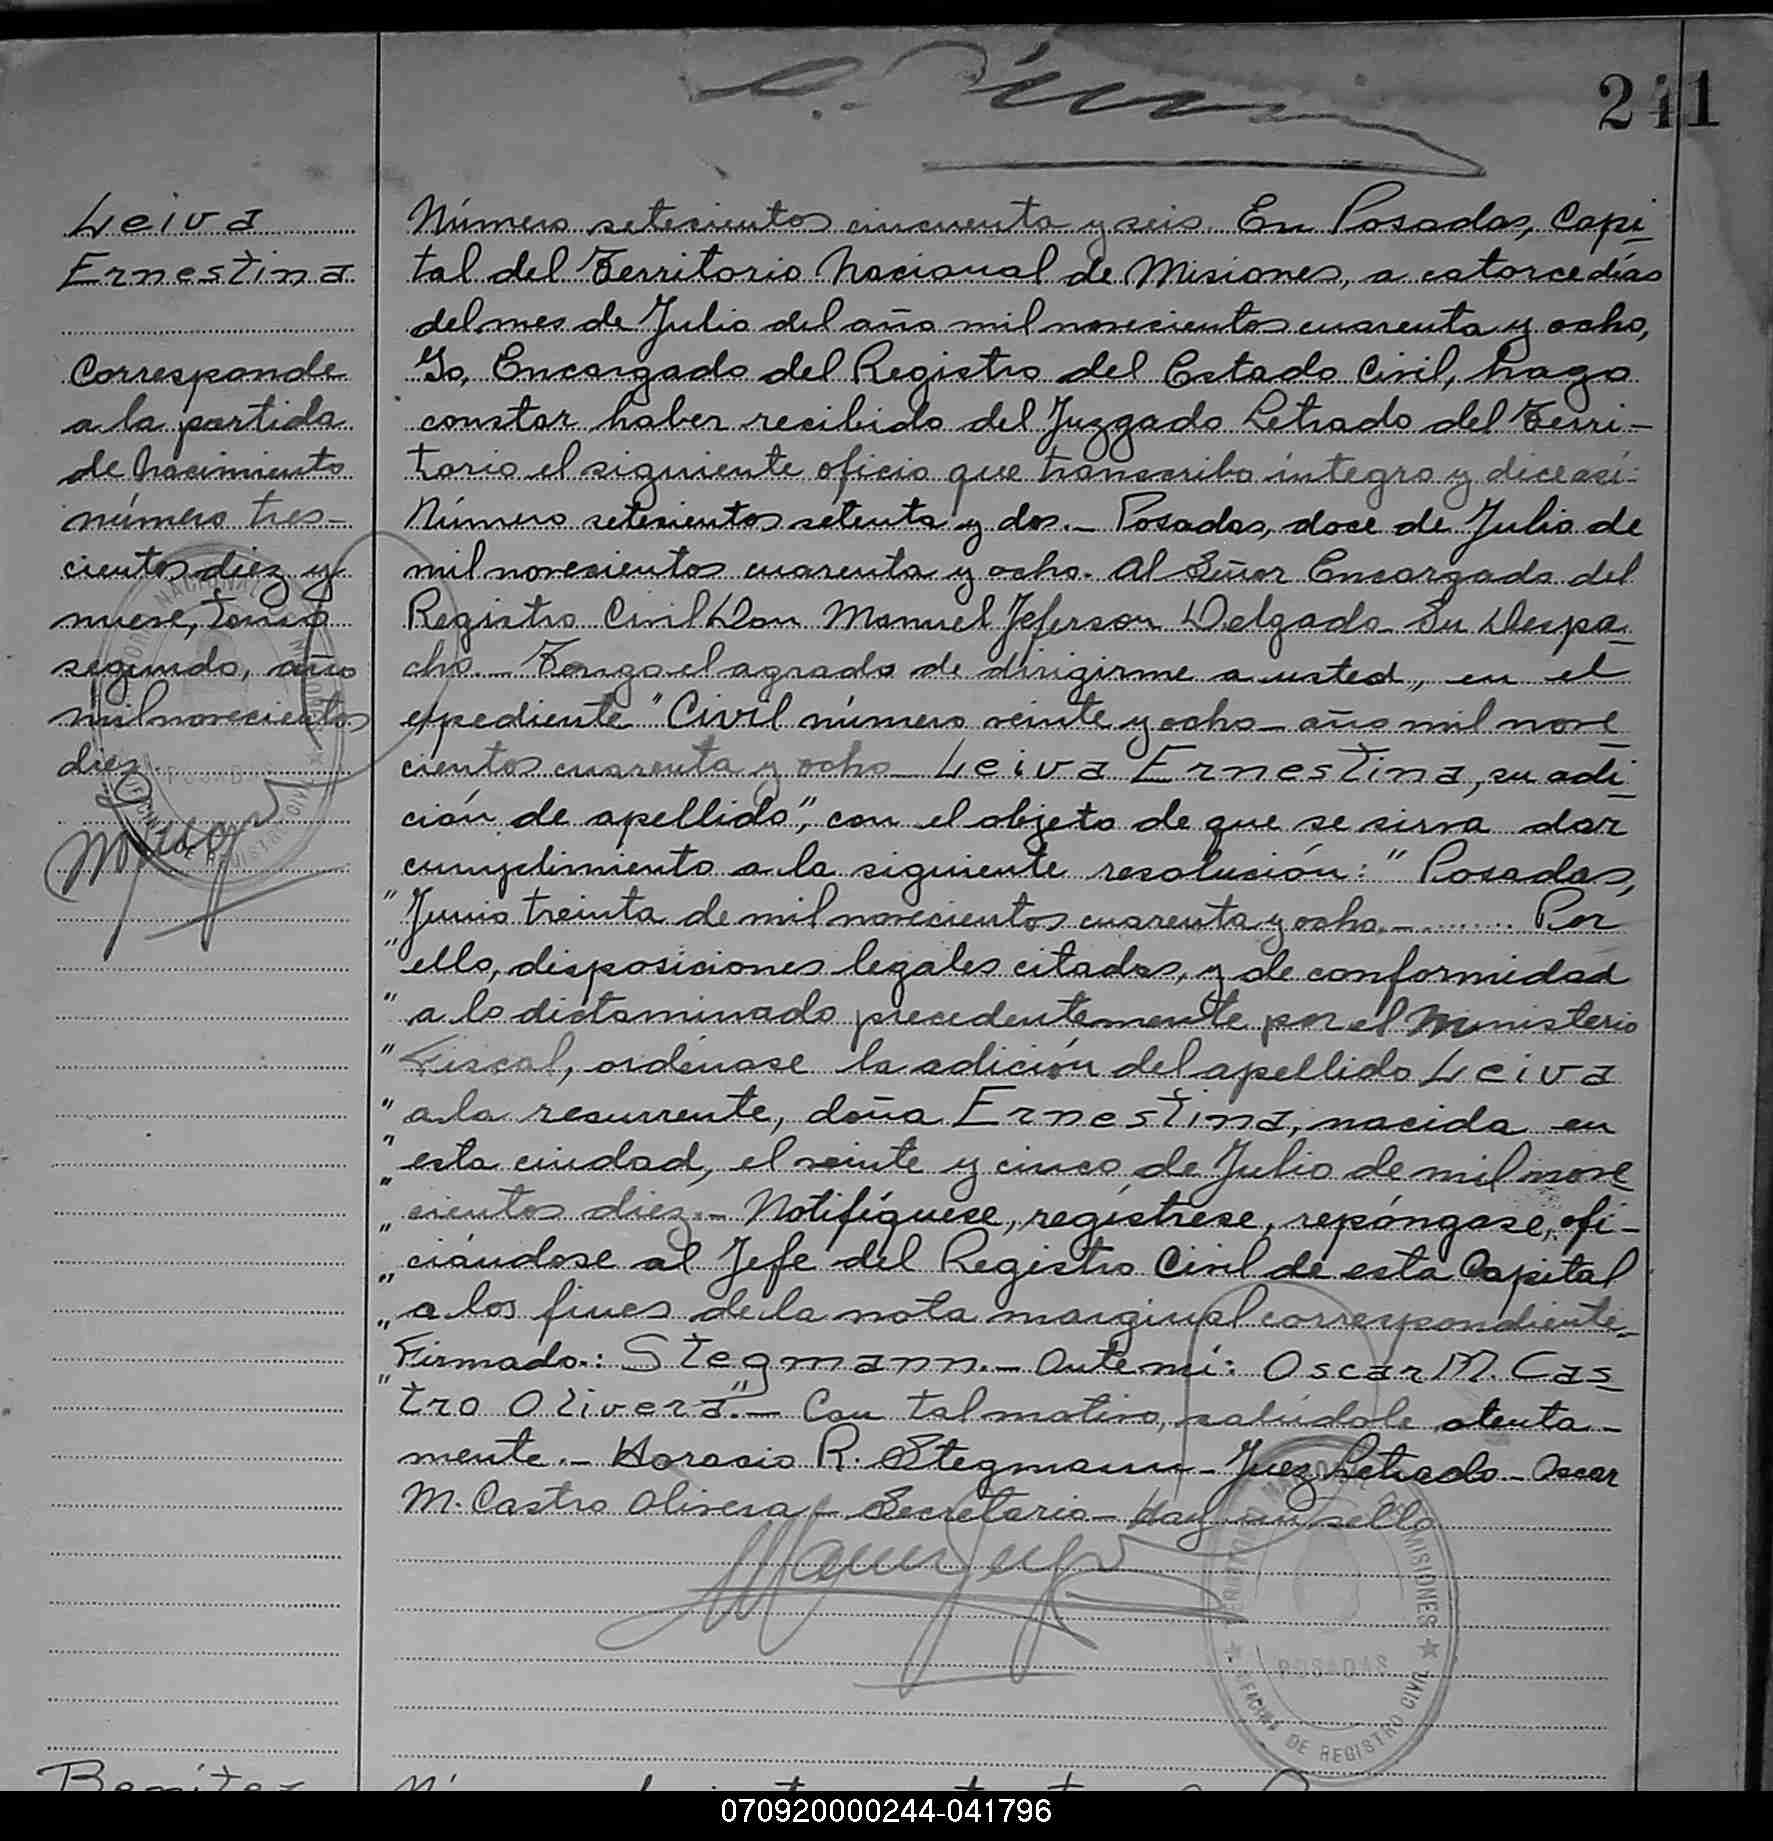 241
Leiva
Ernestina
Corresponde
a la partida
de nacimiento
número tres-
cientos diez y
nueve, tomo
segundo, año
mil novecientos
diez.
Número setecientos cincuenta y seis. En Posadas, Capi-
tal del Territorio Nacional de Misiones, a catorce días
del mes de Julio del año mil novecientos cuarenta y ocho,
Yo, Encargado del Registro del Estado Civil, hago
constar haber recibido del Juzgado Letrado del Terri-
torio el siguiente oficio que transcribo íntegro y dice así:
Número setecientos setenta y dos.- Posadas, doce de Julio de
mil novecientos cuarenta y ocho. Al Señor Encargado del
Registro Civil Don Manuel Jeferson Delgado Su Despa-
cho.- Tengo el agrado de dirigirme a usted, en el
expediente "Civil número veinte y ocho- año mil nove
cientos cuarenta y ocho- Leiva Ernestina, su adi-
ción de apellido", con el objeto de que se sirva dar
cumplimiento a la siguiente resolución: "Posadas,
"Junio treinta de mil novecientos cuarenta y ocho.-......... Por
"ello, disposiciones legales citadas, y de conformidad
"a lo dictaminado precedentemente por el Ministerio
"Fiscal, ordénase la adición del apellido Leiva
"a la recurrente, doña Ernestina, nacida en
"esta ciudad, el veinte y cinco de Julio de mil nove
"cientos diez.- Notifíquese, regístrese, repóngase, ofi-
"ciándose al Jefe del Registro Civil de esta Capital
"a los fines de la nota marginal correspondiente.-
"Firmado.: Stegmann.- Ante mí: Oscar M. Cas-
"tro Olivera".- Con tal motivo, salúdole atenta-
mente.- Horacio R. Stegmann- Juez Letrado- Oscar
M. Castro Olivera- Secretario- Hay un sello
TERRITORIO NACIONAL DE MISIONES
POSADAS
OFICINA DE REGISTRO CIVIL
Benitez
070920000244-041796